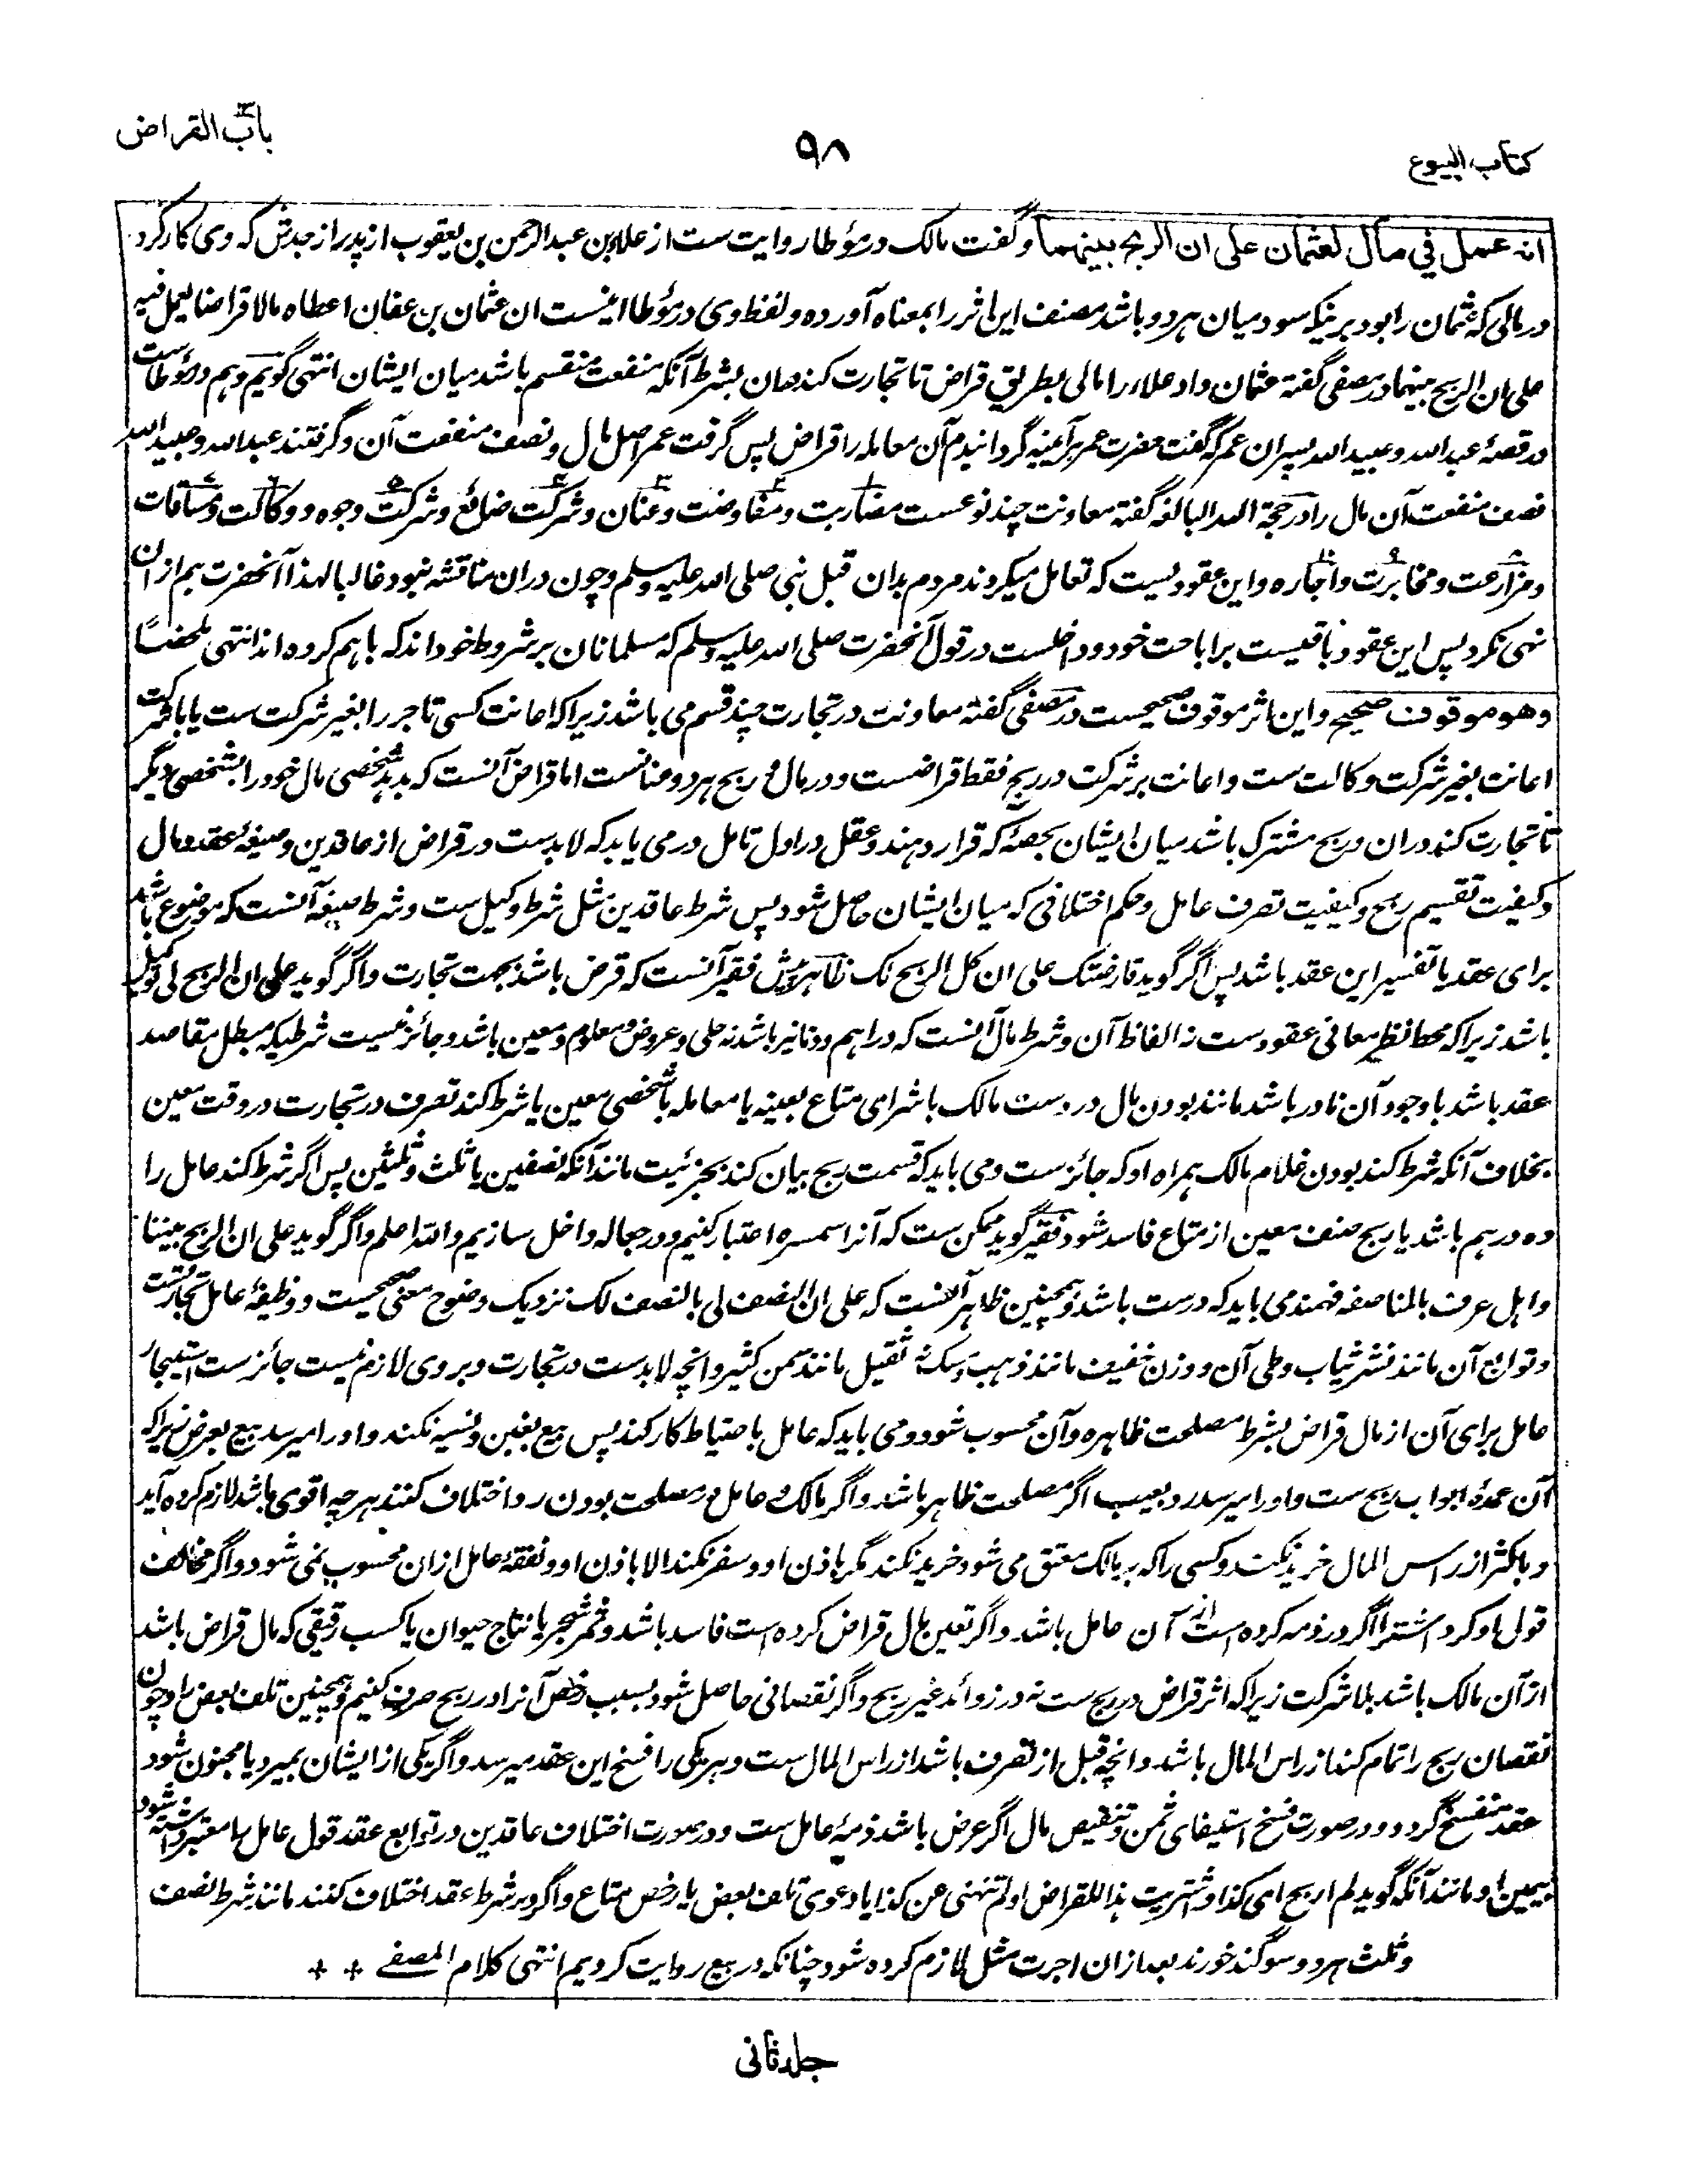 باب القراض
۹۸
کتاب البیوع
انه عمل في مال لعثمان على ان الربح بينهما وگفت مالک در مؤطا روایت ست از علاء بن عبد الرحمن بن یعقوب از پدر از جدش که وی کار کرد
در مالی که عثمان را بود برینکه سود میان هر دو باشد مصنف این اثر را بمعناه آورده و لفظ وی در مؤطا اینست ان عثمان بن عفان اعطاه مالا قراضا یعمل فیه
علی ان الربح بینهما در مصفی گفته عثمان داد علاء را مالی بطریق قراض تا تجارت کند دران بشرط آنکه منفعت منقسم باشد میان ایشان انتهی گویم و هم در مؤطاست
در قصهٔ عبد الله و عبید الله پسران عمر که گفت حضرت عمر هرآئینه گردانیدم آن معامله را قراض پس گرفت عمر اصل مال و نصف منفعت آن و گرفتند عبد الله و عبید الله
نصف منفعت آن مال را در حجة الله البالغه گفته معاونت چند نوعست مضاربت و مفاوضت و عنان و شرکت صنائع و شرکت وجوه و وکالت و مساقات
و مزارعت و مخابرت و اجاره و این عقودیست که تعامل میکردند مردم بدان قبل نبی صلی الله علیه وسلم و چون دران مناقشه نبود غالبا لهذا آنحضرت هم از ان
نهی نکرد پس این عقود باقیست بر اباحت خود و داخلست در قول آنحضرت صلی الله علیه وسلم که مسلمانان بر شروط خود اند که باهم کرده اند انتهی ملخصًا
وهو موقوف صحیح و این اثر موقوف صحیحست در مصفی گفته معاونت در تجارت چند قسم می باشد زیراکه اعانت کسی تاجر را بغیر شرکت ست یا با شرکت
اعانت بغیر شرکت وکالت ست و اعانت بر شرکت در ربح فقط قراضست و در مال و ربح هر دو اما قراض آنست که بدهد شخصی مال خود را بشخصی دیگر
تا تجارت کند دران و ربح مشترک باشد میان ایشان بحصهٔ که قرار دهند و عقل در اول تامل در می یابد که لابد ست در قراض از عاقدین و صیغهٔ عقد و مال
و کیفیت تقسیم ربح و کیفیت تصرف عامل و حکم اختلافی که میان ایشان حاصل شود پس شرط عاقدین مثل شرط وکیل ست و شرط صیغه آنست که موضوع باشد
برای عقد یا تفسیر این عقد باشد پس اگر گوید قارضتک علی ان کل الربح لک ظاهر پیش فقیر آنست که قرض باشد بجهت تجارت و اگر گوید علی ان الربح لی توکیل
باشد زیراکه محط نظر معانی عقودست نه الفاظ آن و شرط مال آنست که دراهم و دنانیر باشد نه حلی و عروض و معلوم و معین باشد و جائز نیست شرطیکه مبطل مقاصد
عقد باشد یا وجود آن نادر باشد مانند بودن مال در دست مالک یا شرای متاع بعینه یا معامله با شخصی معین یا شرط کند تصرف در تجارت در وقت معین
بخلاف آنکه شرط کند بودن غلام مالک همراه او که جائز ست و می باید که قسمت ربح بیان کند بجزئیت مانند آنکه نصفین یا ثلث و ثلثین پس اگر شرط کند عامل را
ده درهم باشد یا ربح صنف معین از متاع فاسد شود فقیر گوید ممکن ست که آنرا سمسره اعتبار کنیم و در جعاله داخل سازیم والله اعلم و اگر گوید علی ان الربح بیننا
و اهل عرف بالمناصفه فهمند می باید که درست باشد و همچنین ظاهر آنست که علی ان النصف لی بالنصف لک نزدیک وضوح معنی صحیحست و وظیفهٔ عامل تجارتست
و توابع آن مانند نشر ثیاب و طی آن و وزن خفیف مانند ذهب و مسک نه ثقیل مانند سمن کثیر و انچه لابدست در تجارت و بر وی لازم نیست جائز ست استیجار
عامل برای آن از مال قراض بشرط مصلحت ظاهره و آن محسوب شود و می باید که عامل باحتیاط کار کند پس بیع بغبن و نسیه نکند و او را میرسد بیع بعرض زیراکه
آن عمدهٔ ابواب ربح ست و او را میرسد رد بعیب اگر مصلحت ظاهر باشد و اگر مالک و عامل در مصلحت بودن رد اختلاف کنند هرچه اقوی باشد لازم کرده آید
و باکثر از راس المال خرید نکند و کسی را که بر مالک معتق می شود خرید نکند مگر باذن او و سفر نکند الا باذن او و نفقهٔ عامل از ان محسوب نمی شود و اگر مخالف
قول او کرد اشترا اگر در ذمه کرده است از آن عامل باشد و اگر بعین مال قراض کرده است فاسد باشد و ثمر شجر یا نتاج حیوان یا کسب رقیقی که مال قراض باشد
از آن مالک باشد بلا شرکت زیراکه اثر قراض در ربح ست نه در زوائد غیر ربح و اگر نقصانی حاصل شود بسبب رخص آنرا در ربح صرف کنیم و همچنین تلف بعض را و چون
نقصان ربح را تمام کند از راس المال باشد و انچه قبل از تصرف باشد از راس المال ست و هر یکی را فسخ این عقد میرسد و اگر یکی از ایشان بمیرد یا مجنون شود
عقد منفسخ گردد و در صورت فسخ استیفای ثمن و تنضیض مال اگر عرض باشد ذمهٔ عامل ست و در صورت اختلاف عاقدین در توابع عقد قول عامل را معتبر داشته شود
بیمین او مانند آنکه گوید لم اربح ای کذا و اشتریت هذا للقراض او لم تنهنی عن کذا یا دعوی تلف بعض یا رخص متاع و اگر در شرط عقد اختلاف کنند مانند شرط نصف
و ثلث هر دو سوگند خورند بعد از ان اجرت مثل لازم کرده شود چنانکه در بیع روایت کردیم انتهی کلام المصفے
جلد ثانی